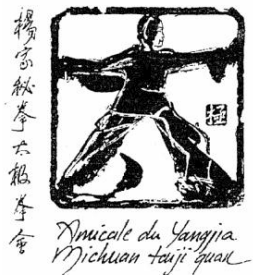 楊家秘拳太極拳會
極
Amicale du Yangjia
Michuan taiji quan